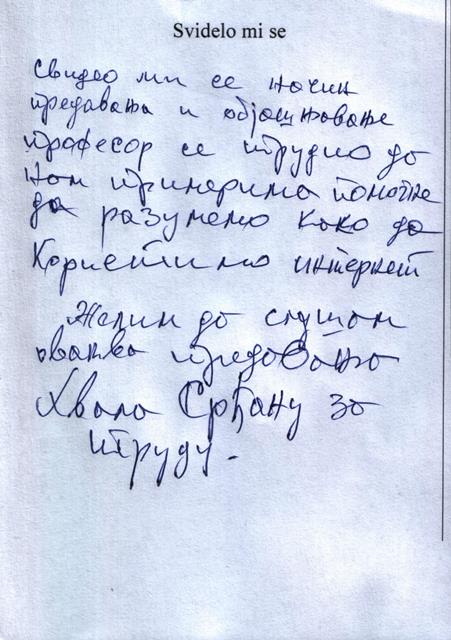 Svidelo mi se
Свидео ми се начин
предавања и објашњавање
професор се трудио да
нам примерима помогне
да разумемо како да
користимо интернет
Желим да слушам
оваква предавања
Хвала Срђану за
труду.